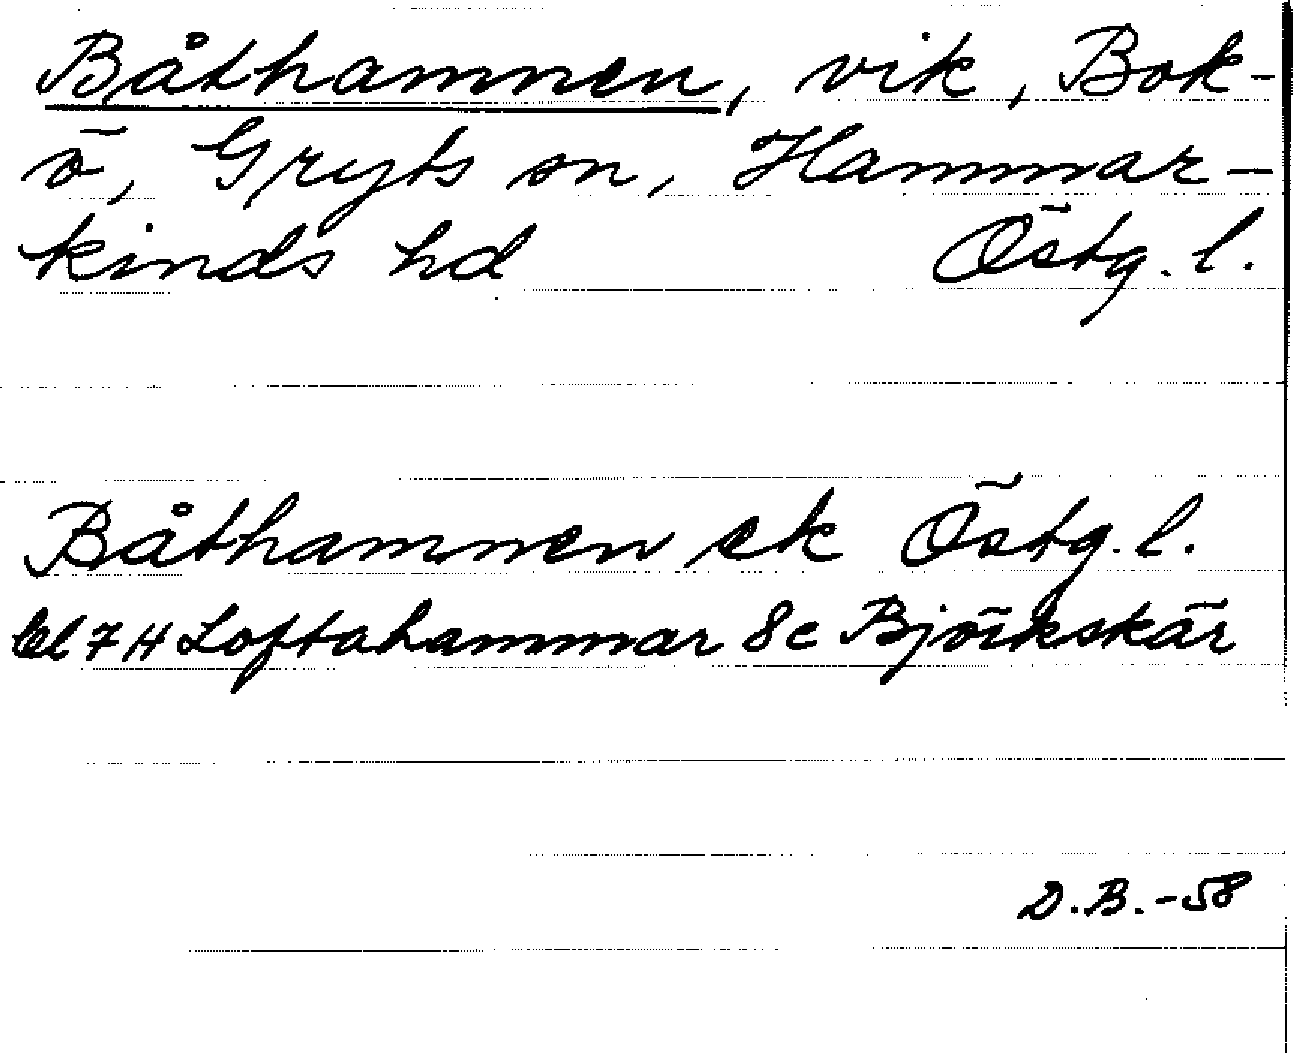 Båthamnen, vik, Bok-
ö, Gryts sn, Hammar-
kinds hd Östg. l.
Båthamnen ek Östg. l.
Bl 7 H Loftahammar 8c Björkskär
D.B.-58